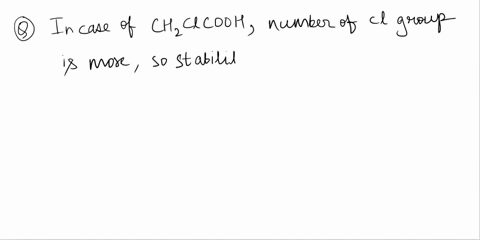 Q In case of CH2ClCOOH, number of cl group
is more, so stabilil